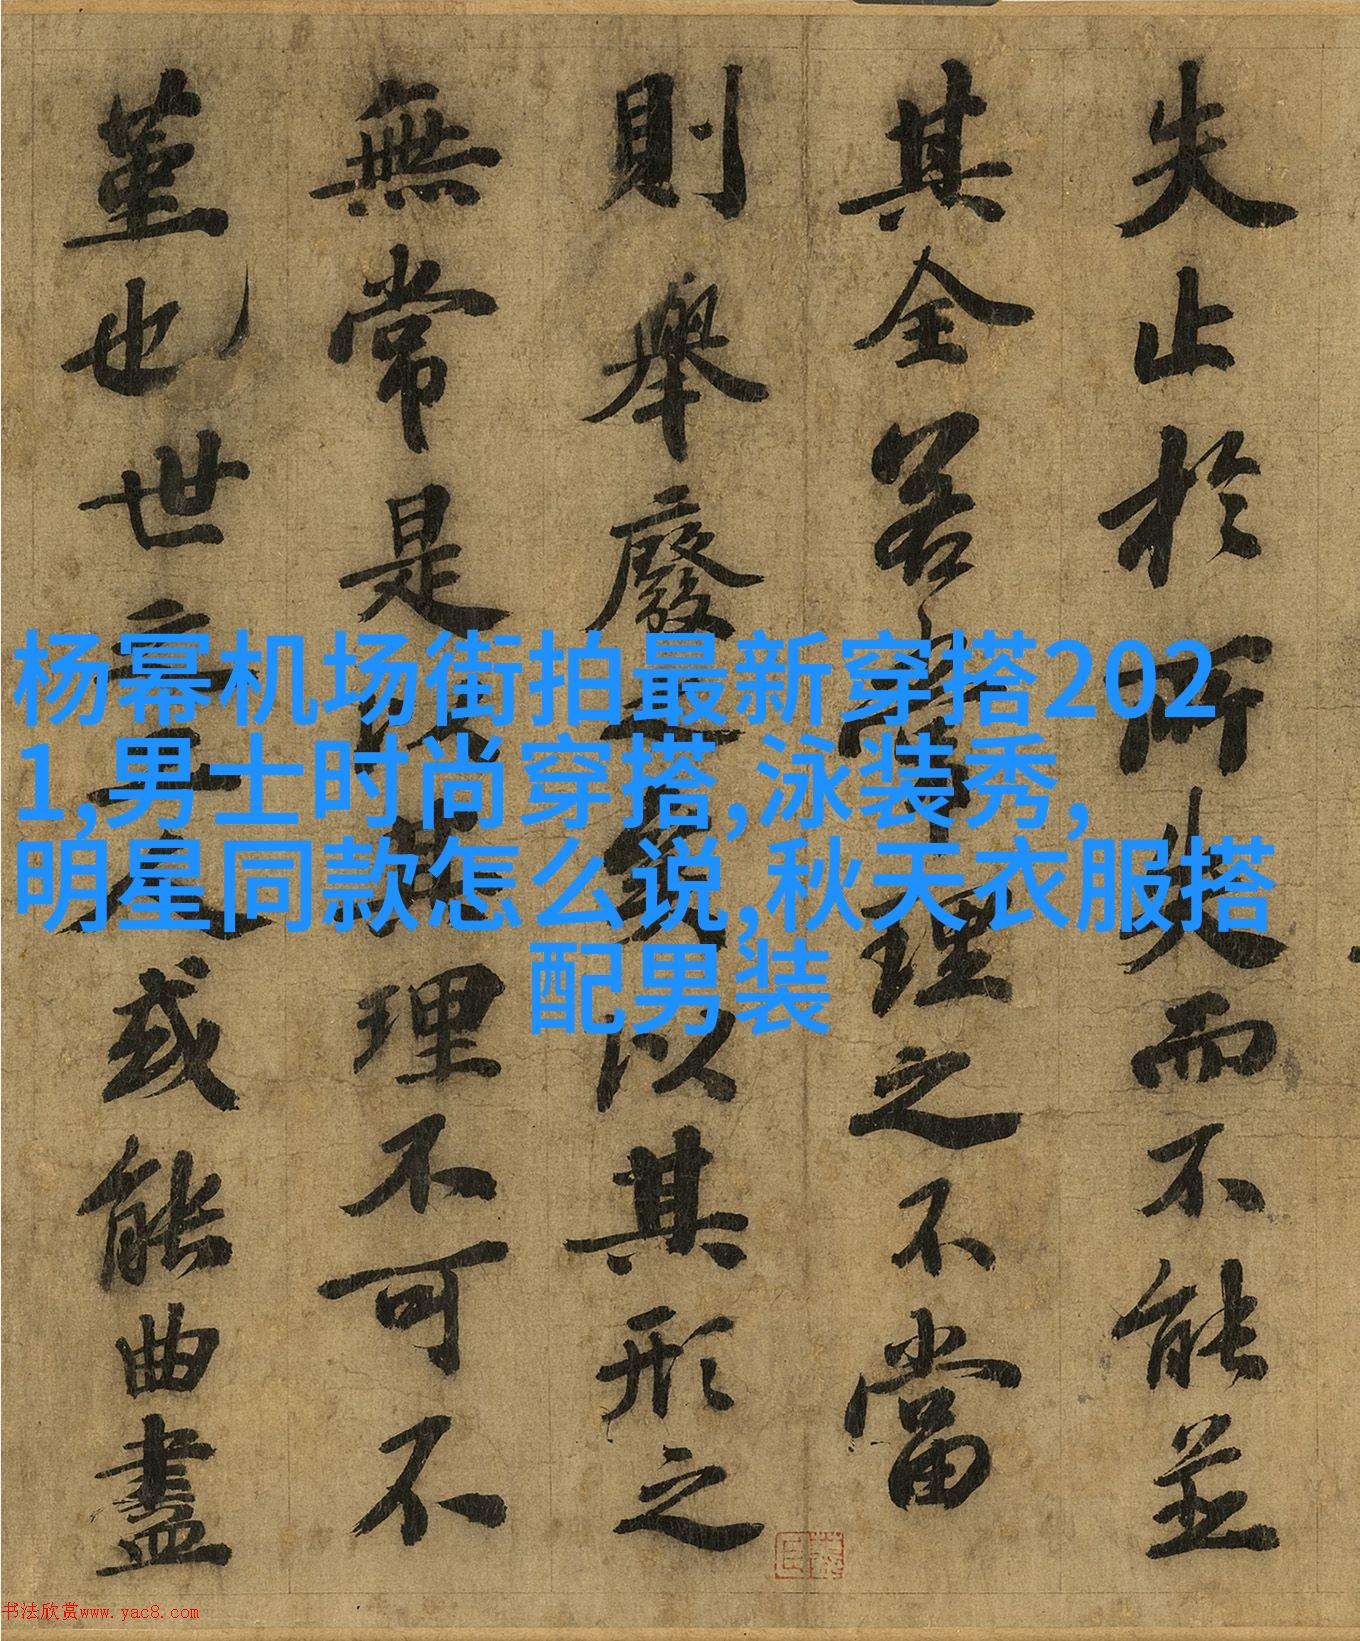 失止於所失而不能並
其全若常理之不當
則舉廢之矣以其形之
無常是以其理不可不
堇也世之工人或能曲盡
杨幂机场街拍最新穿搭202
1,男士时尚穿搭,泳装秀,
明星同款怎么说,秋天衣服搭
配男装
书法欣赏www.yac8.com